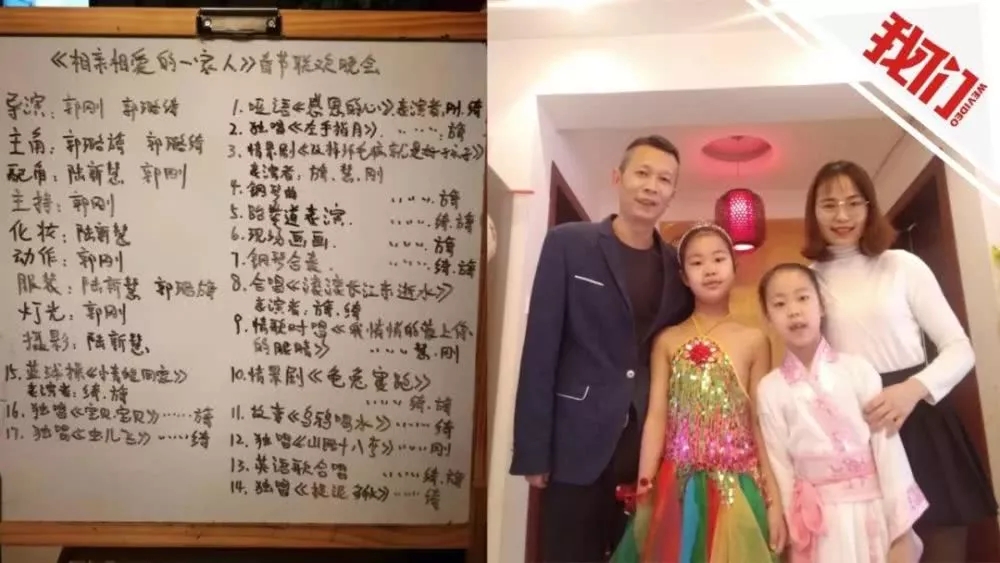 《相亲相爱的一家人》春节联欢晚会
导演：郭刚 郭璐绮
主角：郭璐旖 郭璐绮
配角：陆新慧 郭刚
主持：郭刚
化妆：陆新慧
动作：郭刚
服装：陆新慧 郭璐旖
灯光：郭刚
摄影：陆新慧
1. 哑语《感恩的心》表演者：刚.绮
2. 独唱《左手指月》……旖
3. 情景剧《改掉坏毛病就是好孩子》
表演者：旖.慧.刚
4. 钢琴曲 ……旖
5. 跆拳道表演 ……绮.旖
6. 现场画画 ……旖
7. 钢琴合奏 ……绮.旖
8. 合唱《滚滚长江东逝水》
表演者：旖.绮
9. 情歌对唱《我悄悄的蒙上你
的眼睛》……慧.刚
10. 情景剧《龟兔赛跑》
……绮.旖
11. 故事《乌鸦喝水》……绮
12. 独唱《山路十八弯》……刚
13. 英语歌合唱 ……绮.旖
14. 独唱《捉泥鳅》……绮
15. 篮球操
表演者：绮.旖
16. 独唱《宝贝宝贝》……旖
17. 独唱《虫儿飞》……绮
我们
WEVIDEO